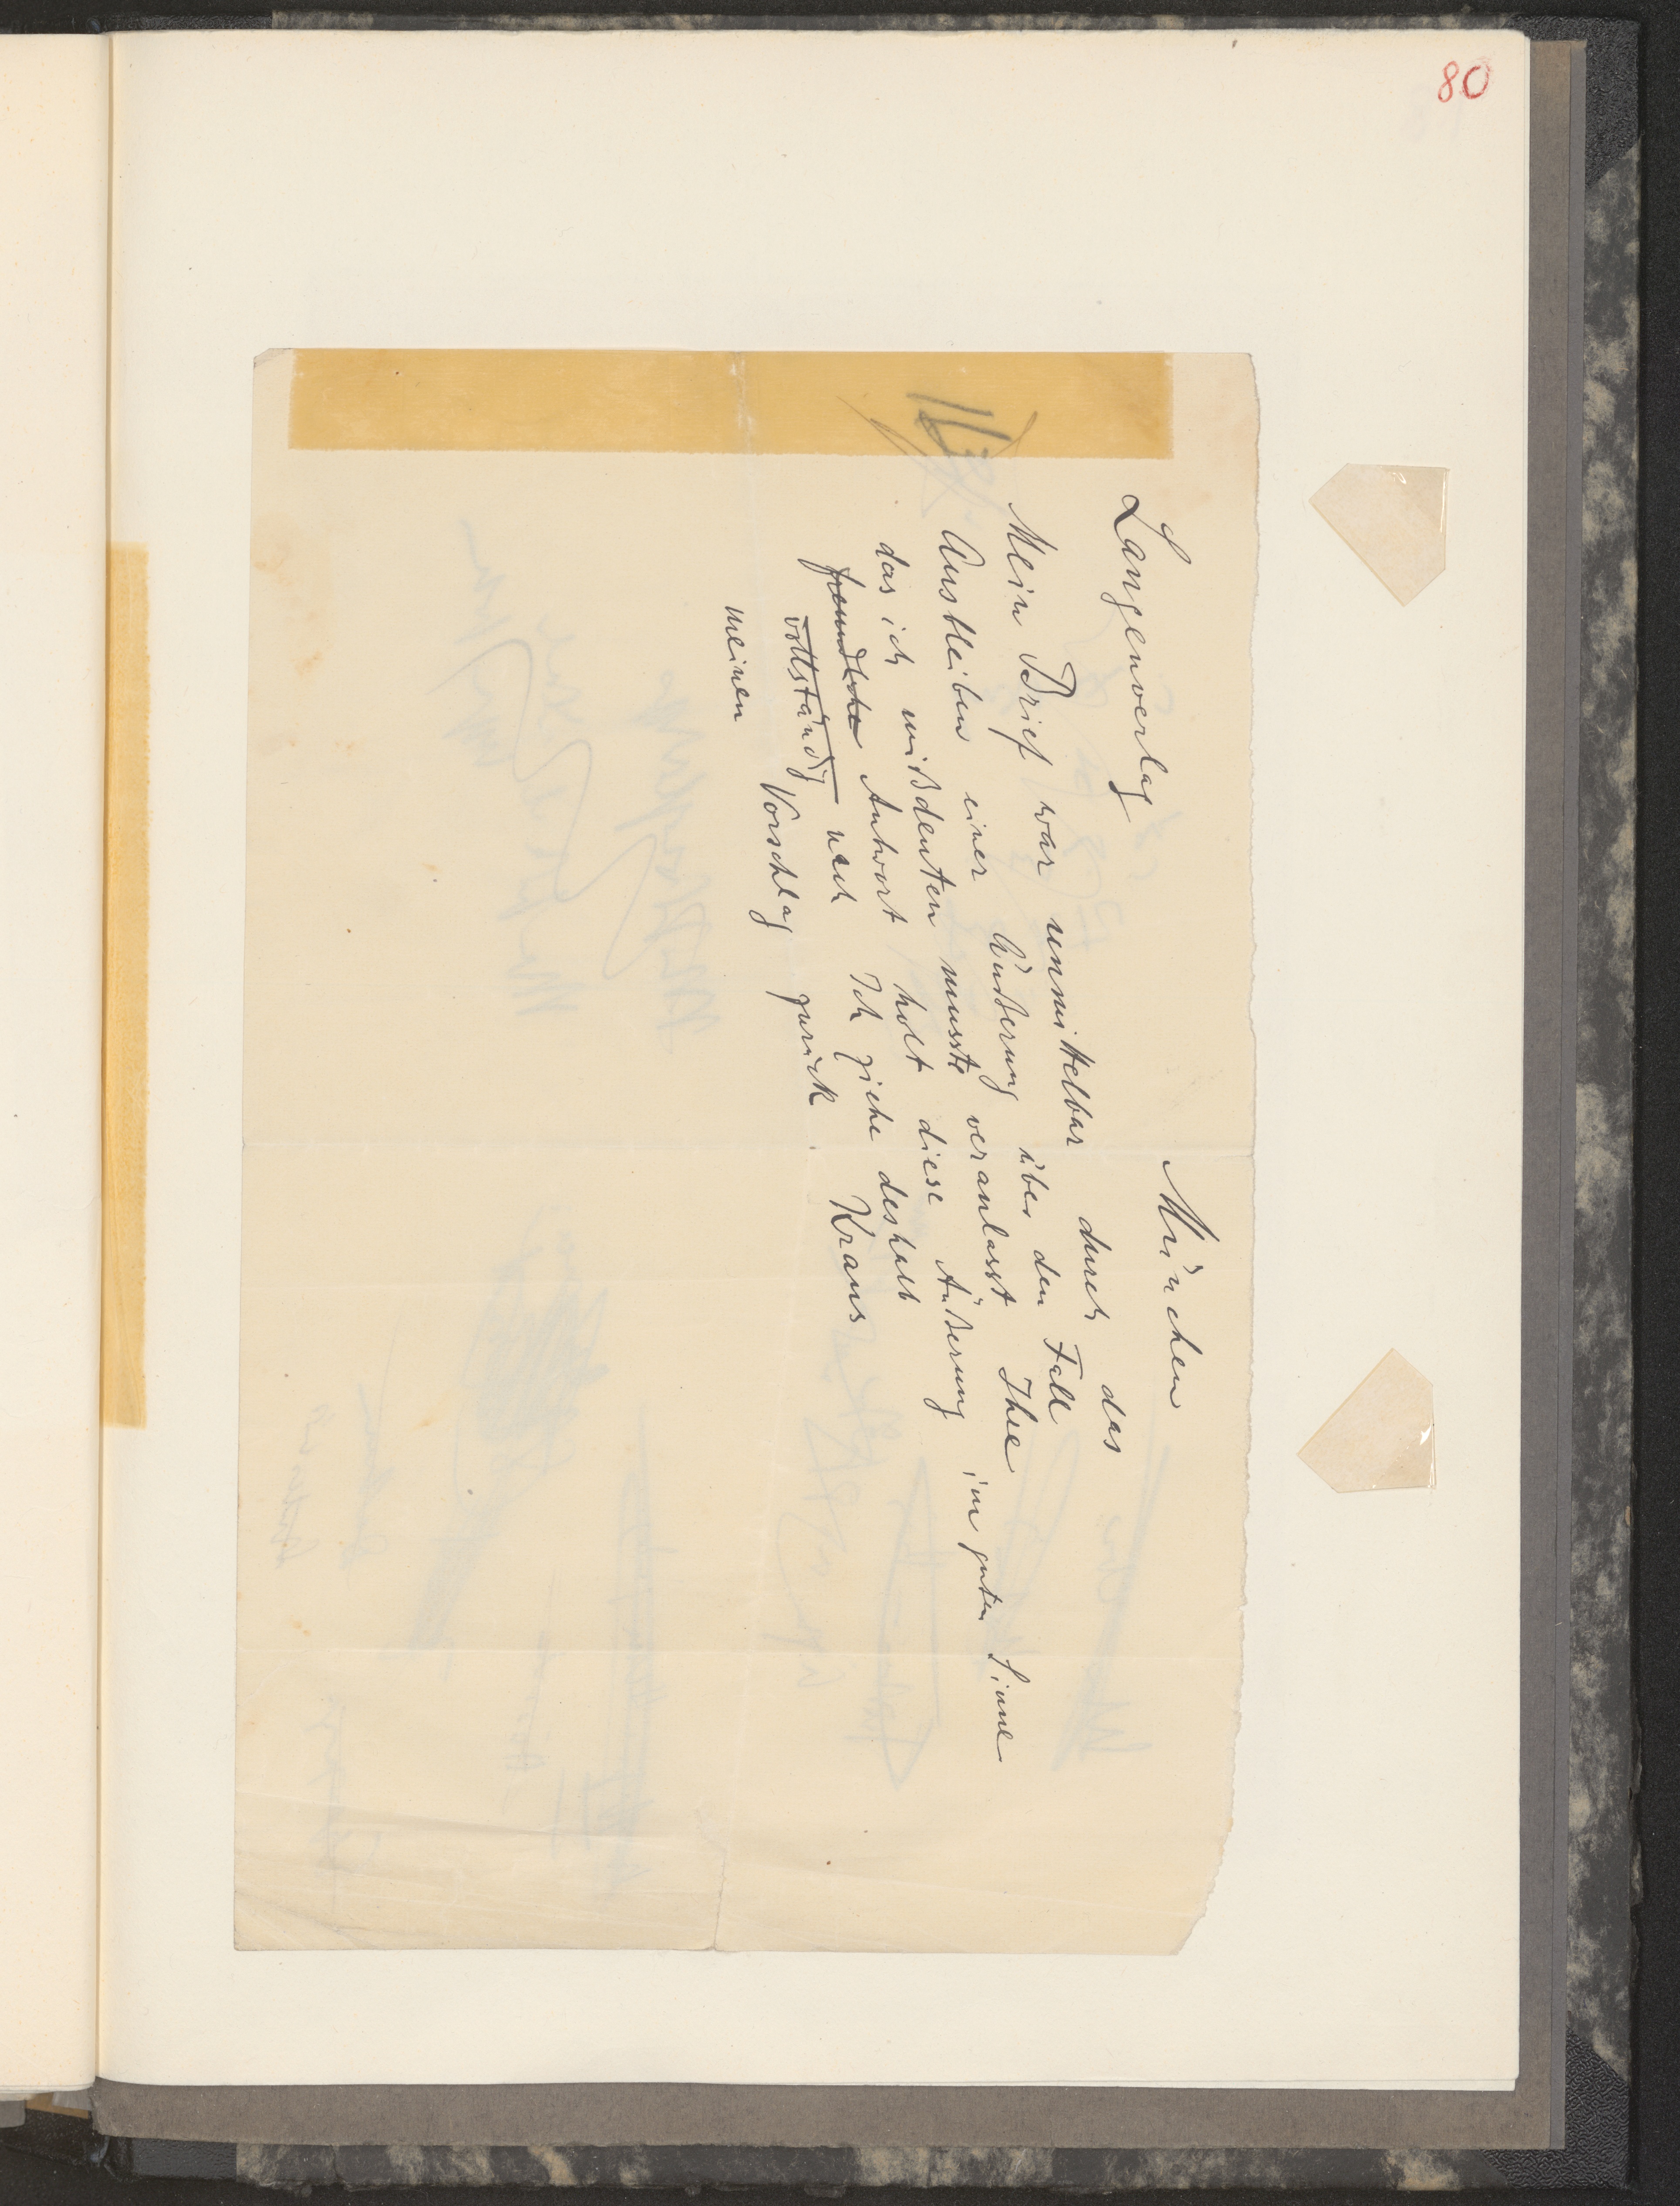 80
Langenverlag München
Mein Brief war unmittelbar durch das
Ausbleiben einer Äußerung über den Fall
das ich mißdeuten musste veranlasst Ihre im guten Sinne
freundliche Antwort holt diese Äußerung
vollständig nach Ich ziehe deshalb
meinen Vorschlag zurück Kraus